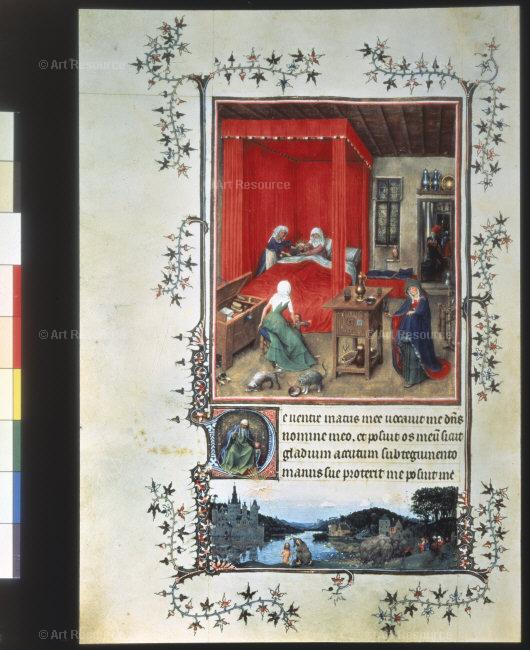 © Art Resource
Art Resource
© Art Resource
De uentre matris mee uocauit me dñs
nomine meo. et posuit os meū sicut
gladium acutum sub tegumento
manus sue protexit me posuit me
© Art Resource © Art Resource © Art Resource